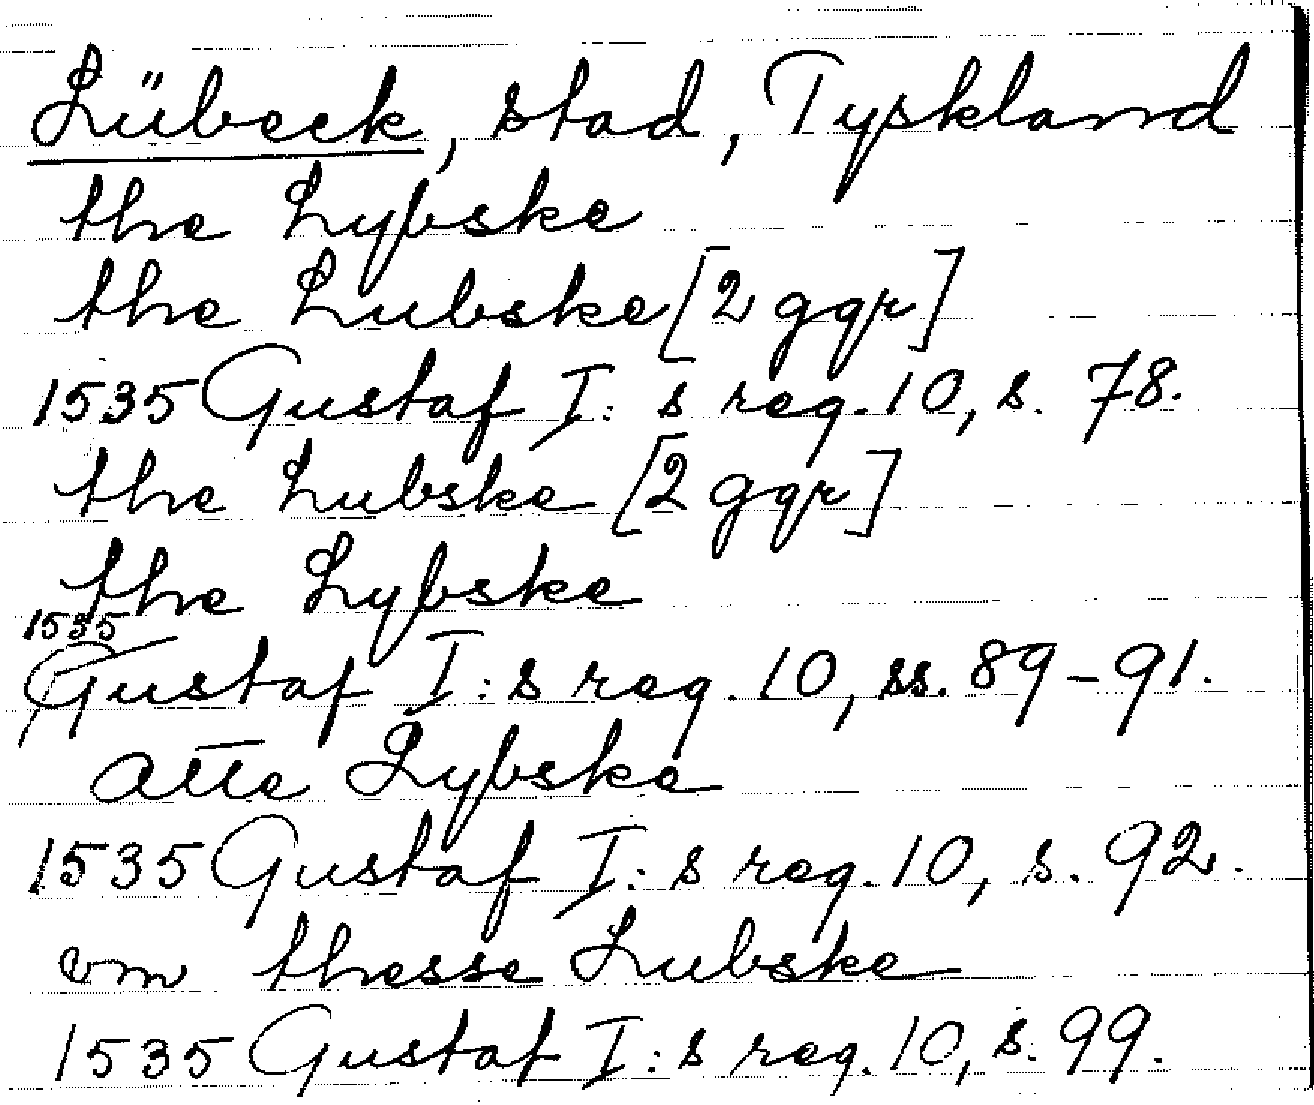 Lübeck, stad, Tyskland
the Lybske
the Lubske [2 ggr]
1535 Gustaf I:s reg. 10, s. 78.
the Lubske [2 ggr]
the Lybske
1535
Gustaf I:s reg. 10, ss. 89-91.
atte Lybske
1535 Gustaf I:s reg. 10, s. 92.
vm thesse Lubske
1535 Gustaf I:s reg. 10, s. 99.